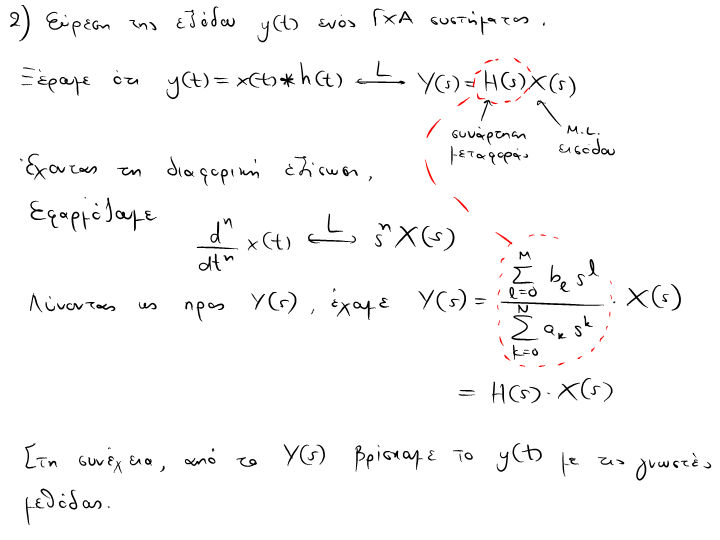 2) Εύρεση της εξόδου y(t) ενός ΓΧΑ συστήματος.
Ξέρουμε ότι y(t) = x(t) * h(t) ⟷ L Y(s) = H(s) X(s)
συνάρτηση μεταφοράς
Μ.L. εισόδου
Έχοντας τη διαφορική εξίσωση,
Εφαρμόζουμε
d^n/dt^n x(t) ⟷ L s^n X(s)
Λύνοντας ως προς Y(s), έχουμε Y(s) = (∑_{l=0}^{M} b_l s^l) / (∑_{k=0}^{N} a_k s^k) · X(s)
= H(s) · X(s)
Στη συνέχεια, από το Y(s) βρίσκουμε το y(t) με τις γνωστές
μεθόδους.